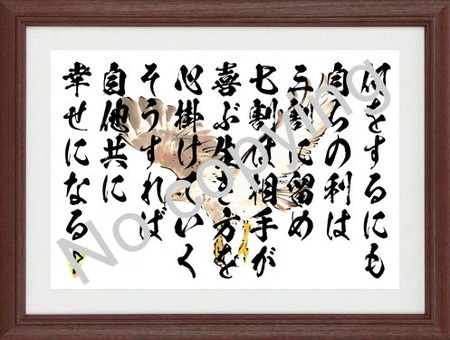 何をするにも
自らの利は
三割に留め
七割は相手が
喜ぶ生き方を
心掛けていく
そうすれば
自他共に
幸せになる
No copying